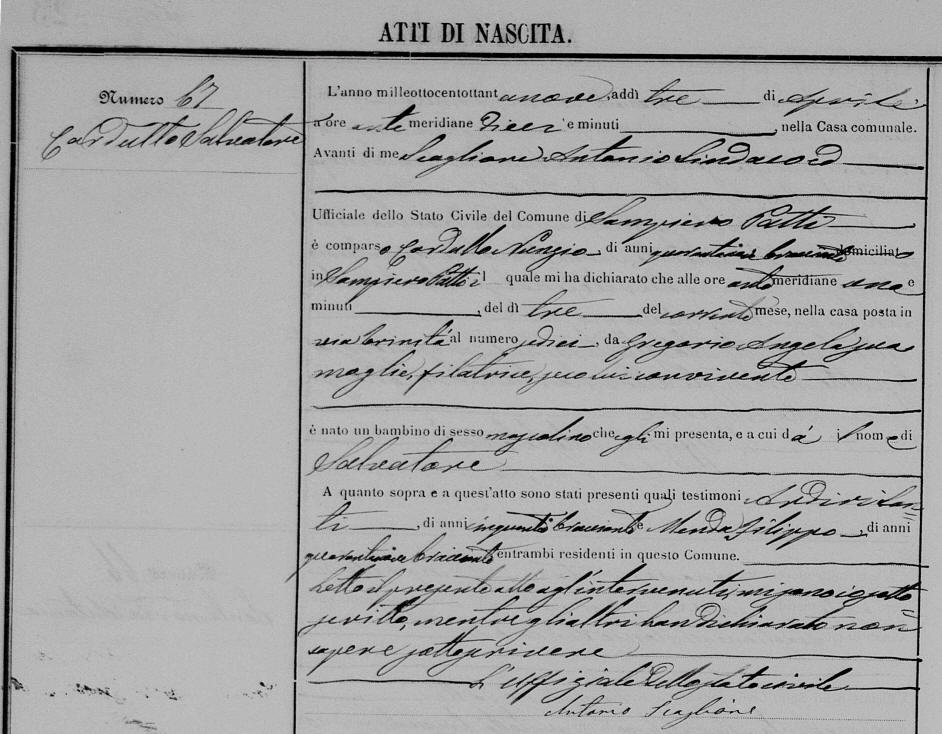 ATTI DI NASCITA.
Numero 67
Cardullo Salvatore
L'anno milleottocentottantanove, addì tre di Aprile
a ore ante meridiane dieci e minuti , nella Casa comunale.
Avanti di me Scaglione Antonio Sindaco ed
Ufficiale dello Stato Civile del Comune di Sampiero Patti
è comparso Cardullo Nunzio, di anni bracciante domiciliato
in Sampiero Patti il quale mi ha dichiarato che alle ore ante meridiane una e
minuti , del dì tre del corrente mese, nella casa posta in
via Trinità al numero , da Gregorio Angela sua
moglie, filatrice, seco lui convivente
è nato un bambino di sesso mascolino che egli mi presenta, e a cui dà il nome di
Salvatore
A quanto sopra e a quest'atto sono stati presenti quali testimoni Ardiri San=
ti , di anni bracciante e Filippo, di anni
bracciante entrambi residenti in questo Comune.
Letto il presente atto agl'intervenuti, mi sono io sotto
scritto, mentre gli altri han dichiarato non
sapere sottoscrivere
L'uffiziale dello stato civile
Antonio Scaglione